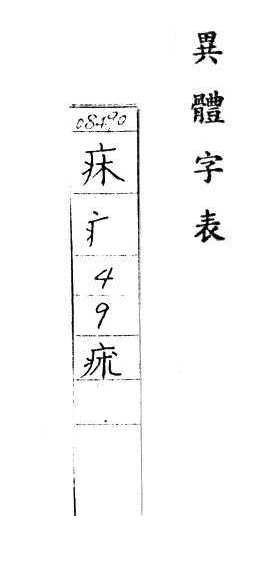 異體字表
08490
疒
4
9